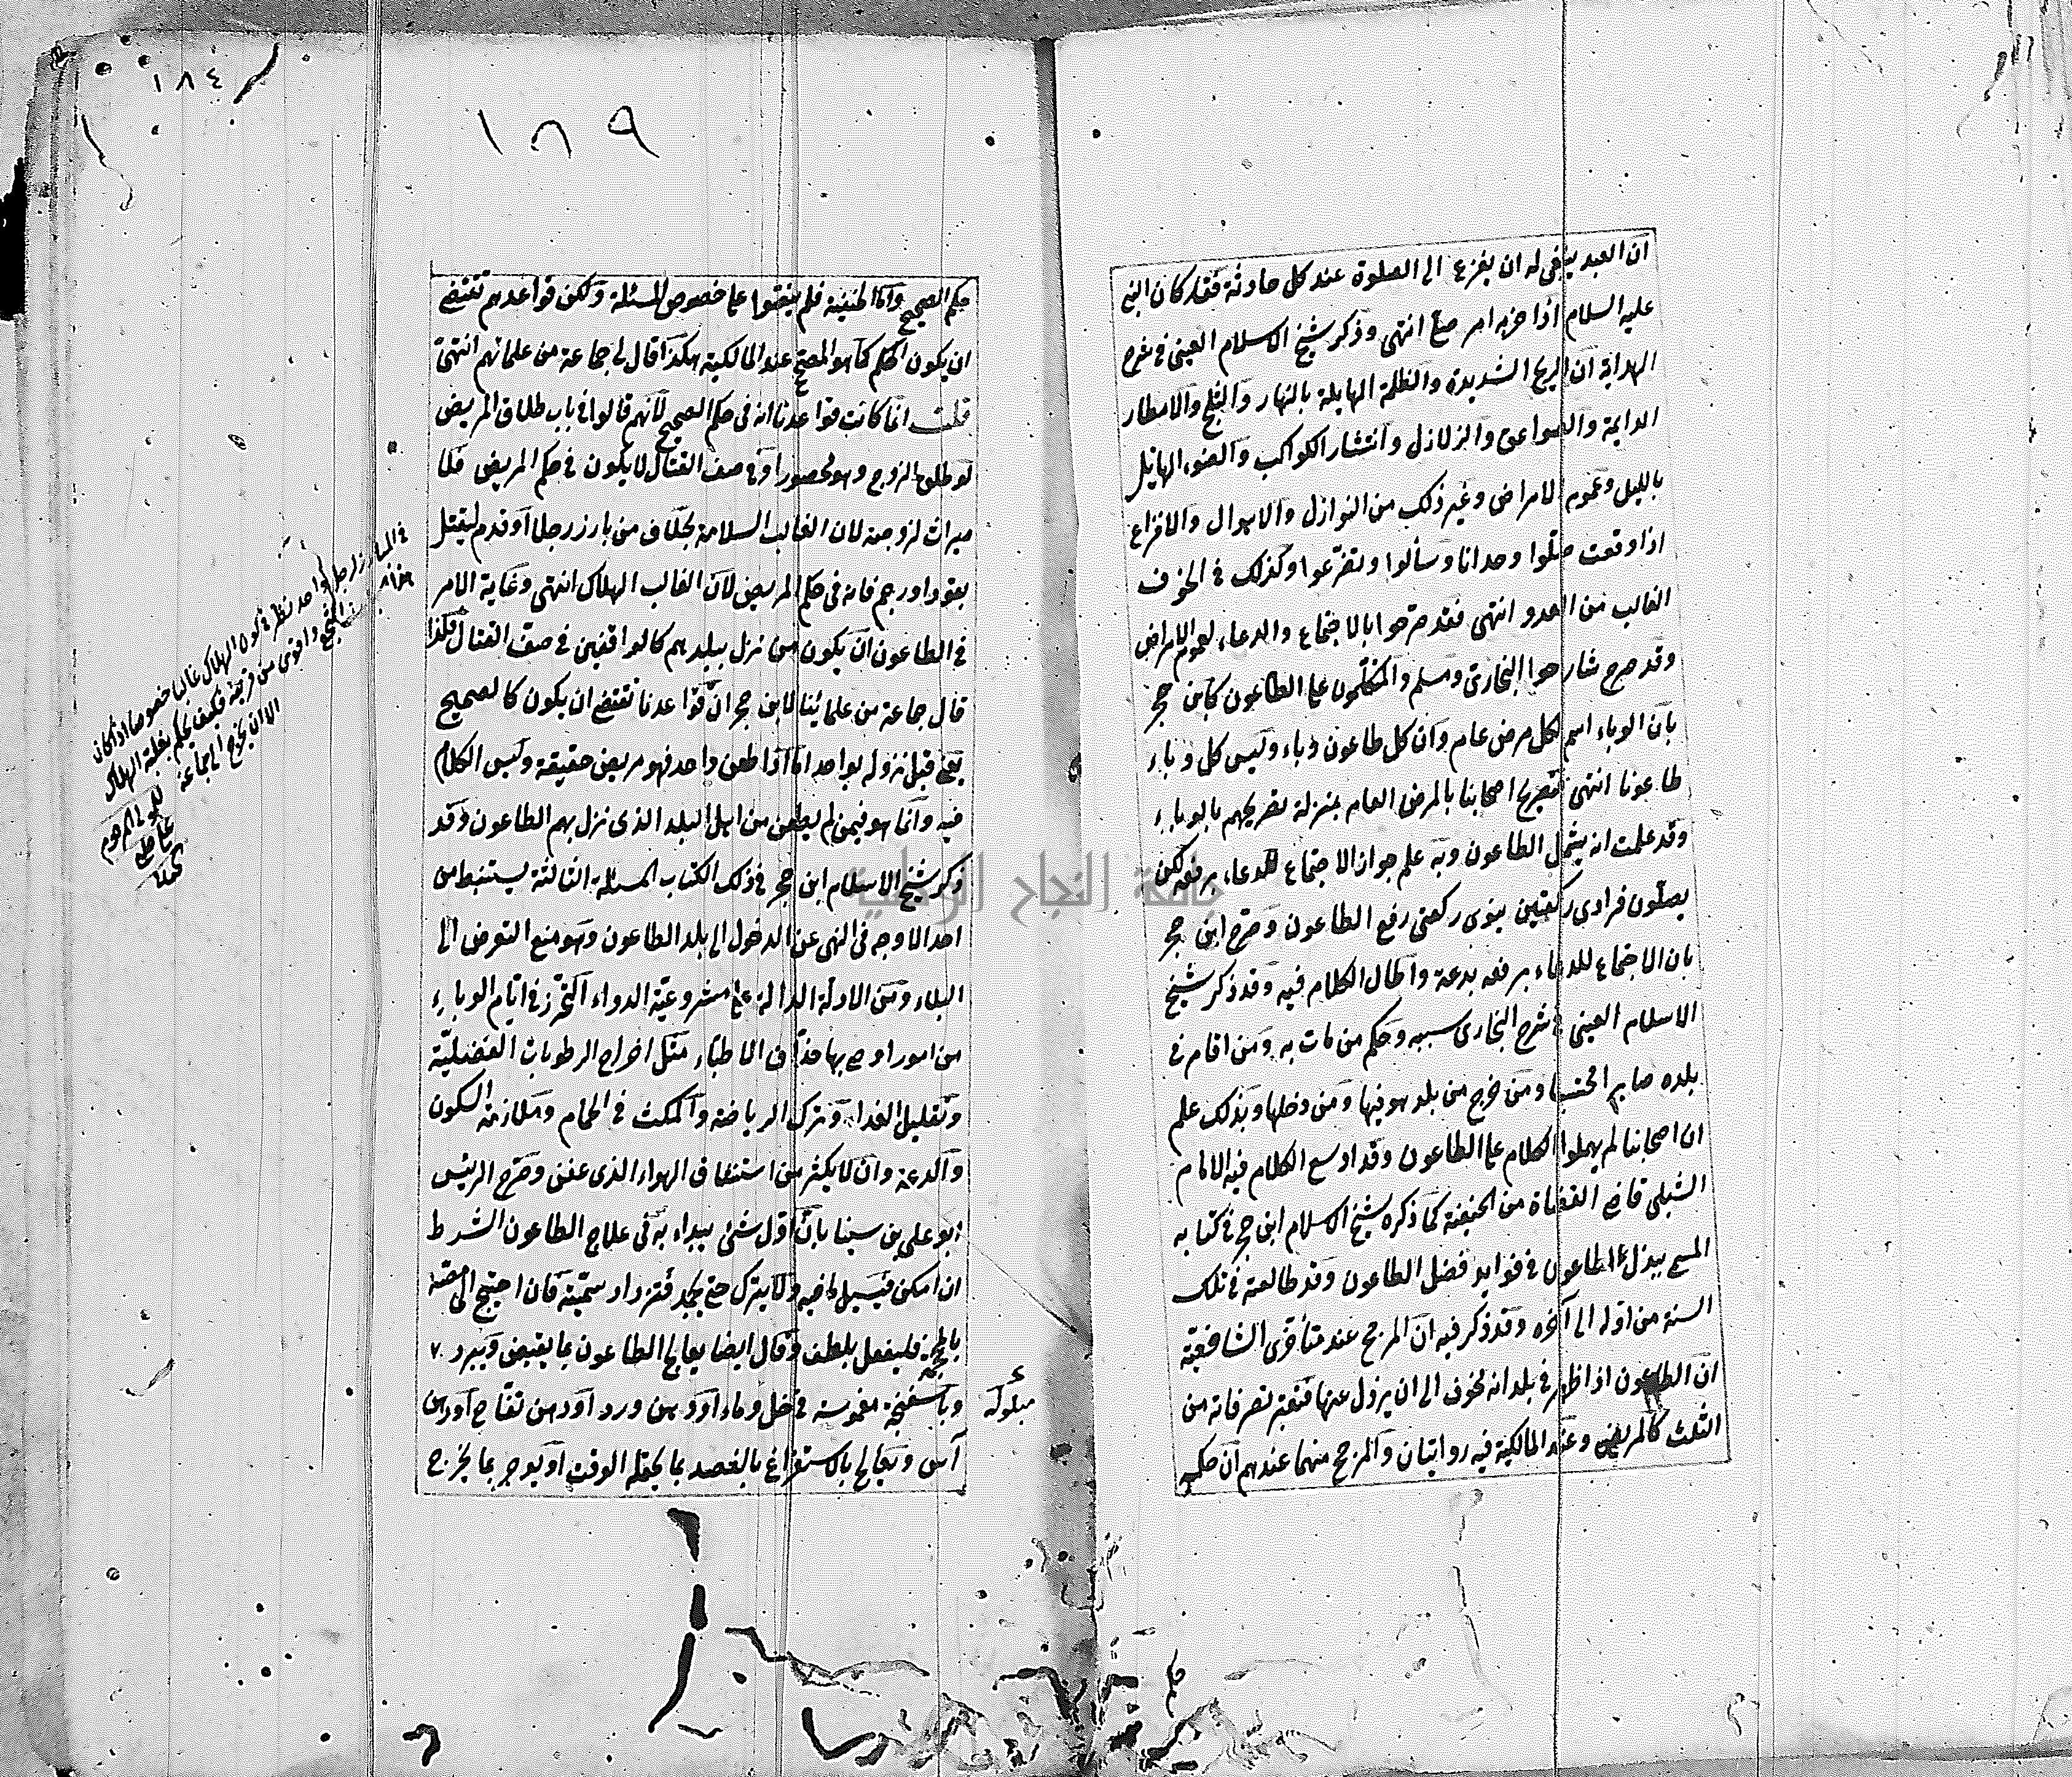 ان العبد ينبغى له ان يفزع الى الصلوة عند كل حادثة فقد كان النبى
عليه السلام اذا حزبه امر صلى انتهى وذكر شيخ الاسلام العينى فى شرح
الهداية ان الريح الشديدة والظلمة الهايلة بالنهار والثلج والامطار
الدايمة والصواعق والزلازل وانتشار الكواكب والضوء الهايل
بالليل وعموم الامراض وغير ذلك من النوازل والاهوال والافزاع
اذا وقعت صلوا وحدانا وسألوا وتضرعوا وكذلك فى الخوف
الغالب من العدو انتهى فقد صرحوا بالاجتماع والدعاء لعموم الامراض
وقد صرح شارحوا البخارى ومسلم والمتكلمون على الطاعون كابن حجر
بان الوباء اسم لكل مرض عام وان كل طاعون وباء وليس كل وباء
طاعونا انتهى فتصريح اصحابنا بالمرض العام بمنزلة تصريحهم بالوباء
وقد علمت انه يشمل الطاعون وبه علم جواز الاجتماع للدعاء برفعه لكن
يصلون فرادى ركعتين ينوى ركعتى رفع الطاعون وصرح ابن حجر
بان الاجتماع للدعاء برفعه بدعة واطال الكلام فيه وقد ذكر شيخ
الاسلام العينى فى شرح البخارى سببه وحكم من مات به ومن اقام فى
بلده صابرا محتسبا ومن خرج من بلد هو فيها ومن دخلها وبذلك علم
ان اصحابنا لم يهملوا الكلام على الطاعون وقد اوسع الكلام فيه الامام
الشبلى قاضى القضاة من الحنفية كما ذكره شيخ الاسلام ابن حجر فى كتابه
المسمى ببذل الطاعون فى فوايد فضل الطاعون وقد طالعته فى تلك
السنة من اوله الى آخره وقد ذكر فيه ان المرجح عند متأخرى الشافعية
ان الطاعون اذا ظهر فى بلد انه مخوف الى ان يزول عنها فتعتبر تصرفاته من
الثلث كالمريض وعند المالكية فيه روايتان والمرجح منهما عندهم ان حكمه
حكم
١٨٤
١٨٩
حكم الصحيح واما الحنفية فلم ينصوا على خصوص المسئلة ولكن قواعدهم تقتضى
ان يكون الحكم كما هو المصحح عند المالكية هكذا قال لى جماعة من علمائهم انتهى
قلت انما كانت قواعدنا انه فى حكم الصحيح لانهم قالوا فى باب طلاق المريض
لو طلق الزوج وهو محصور او فى صف القتال لا يكون فى حكم المريض فلا
ميراث لزوجته لان الغالب السلامة بخلاف من بارز رجلا او قدم ليقتل
بقود او رجم فانه فى حكم المريض لان الغالب الهلاك انتهى وغاية الامر
فى الطاعون ان يكون من نزل ببلدهم كالواقفين فى صف القتال فلذا
قال جماعة من علمائنا لابن حجر ان قواعدنا تقتضى ان يكون كالصحيح
يعنى قبل نزوله بواحد اما اذا طعن واحد فهو مريض حقيقة وليس الكلام
فيه وانما هو فيمن لم يطعن من اهل البلد الذى نزل بهم الطاعون وقد
ذكر شيخ الاسلام ابن حجر فى ذلك الكتاب المسئلة الثالثة يستنبط من
احد الاوجه فى النهى عن الدخول الى بلد الطاعون وهو منع التعرض الى
البلاء ومن الادلة الدالة على مشروعية الدواء التحرز فى ايام الوباء
من امور اوصى بها حذاق الاطباء مثل اخراج الرطوبات الفضلية
وتقليل الغداء وترك الرياضة والمكث فى الحمام وملازمة السكون
والدعة وان لا يكثر من استنشاق الهواء الذى عفن وصرح الرئيس
ابو على بن سينا بان اول شئ يبداء به فى علاج الطاعون الشرط
ان امكن فيسيل ما فيه ولا يترك حتى يجمد فتزداد سميته فان احتيج الى مصه
بالمحجمة فليفعل بلطف وقال ايضا يعالج الطاعون بما يقبض ويبرد
وباسفنجة مغموسة فى خل وماء او دهن ورد او دهن تفاح او دهن
آس ويعالج بالاستفراغ بالفصد بما يحتمله الوقت او يوجر بما يخرج
مبلولة
واحد نظر فى كون الهلاك غالبا خصوصا اذا كان
واقوى من قرينه فكيف يحكم بغلبة الهلاك
جامعة النجاح الوطنية